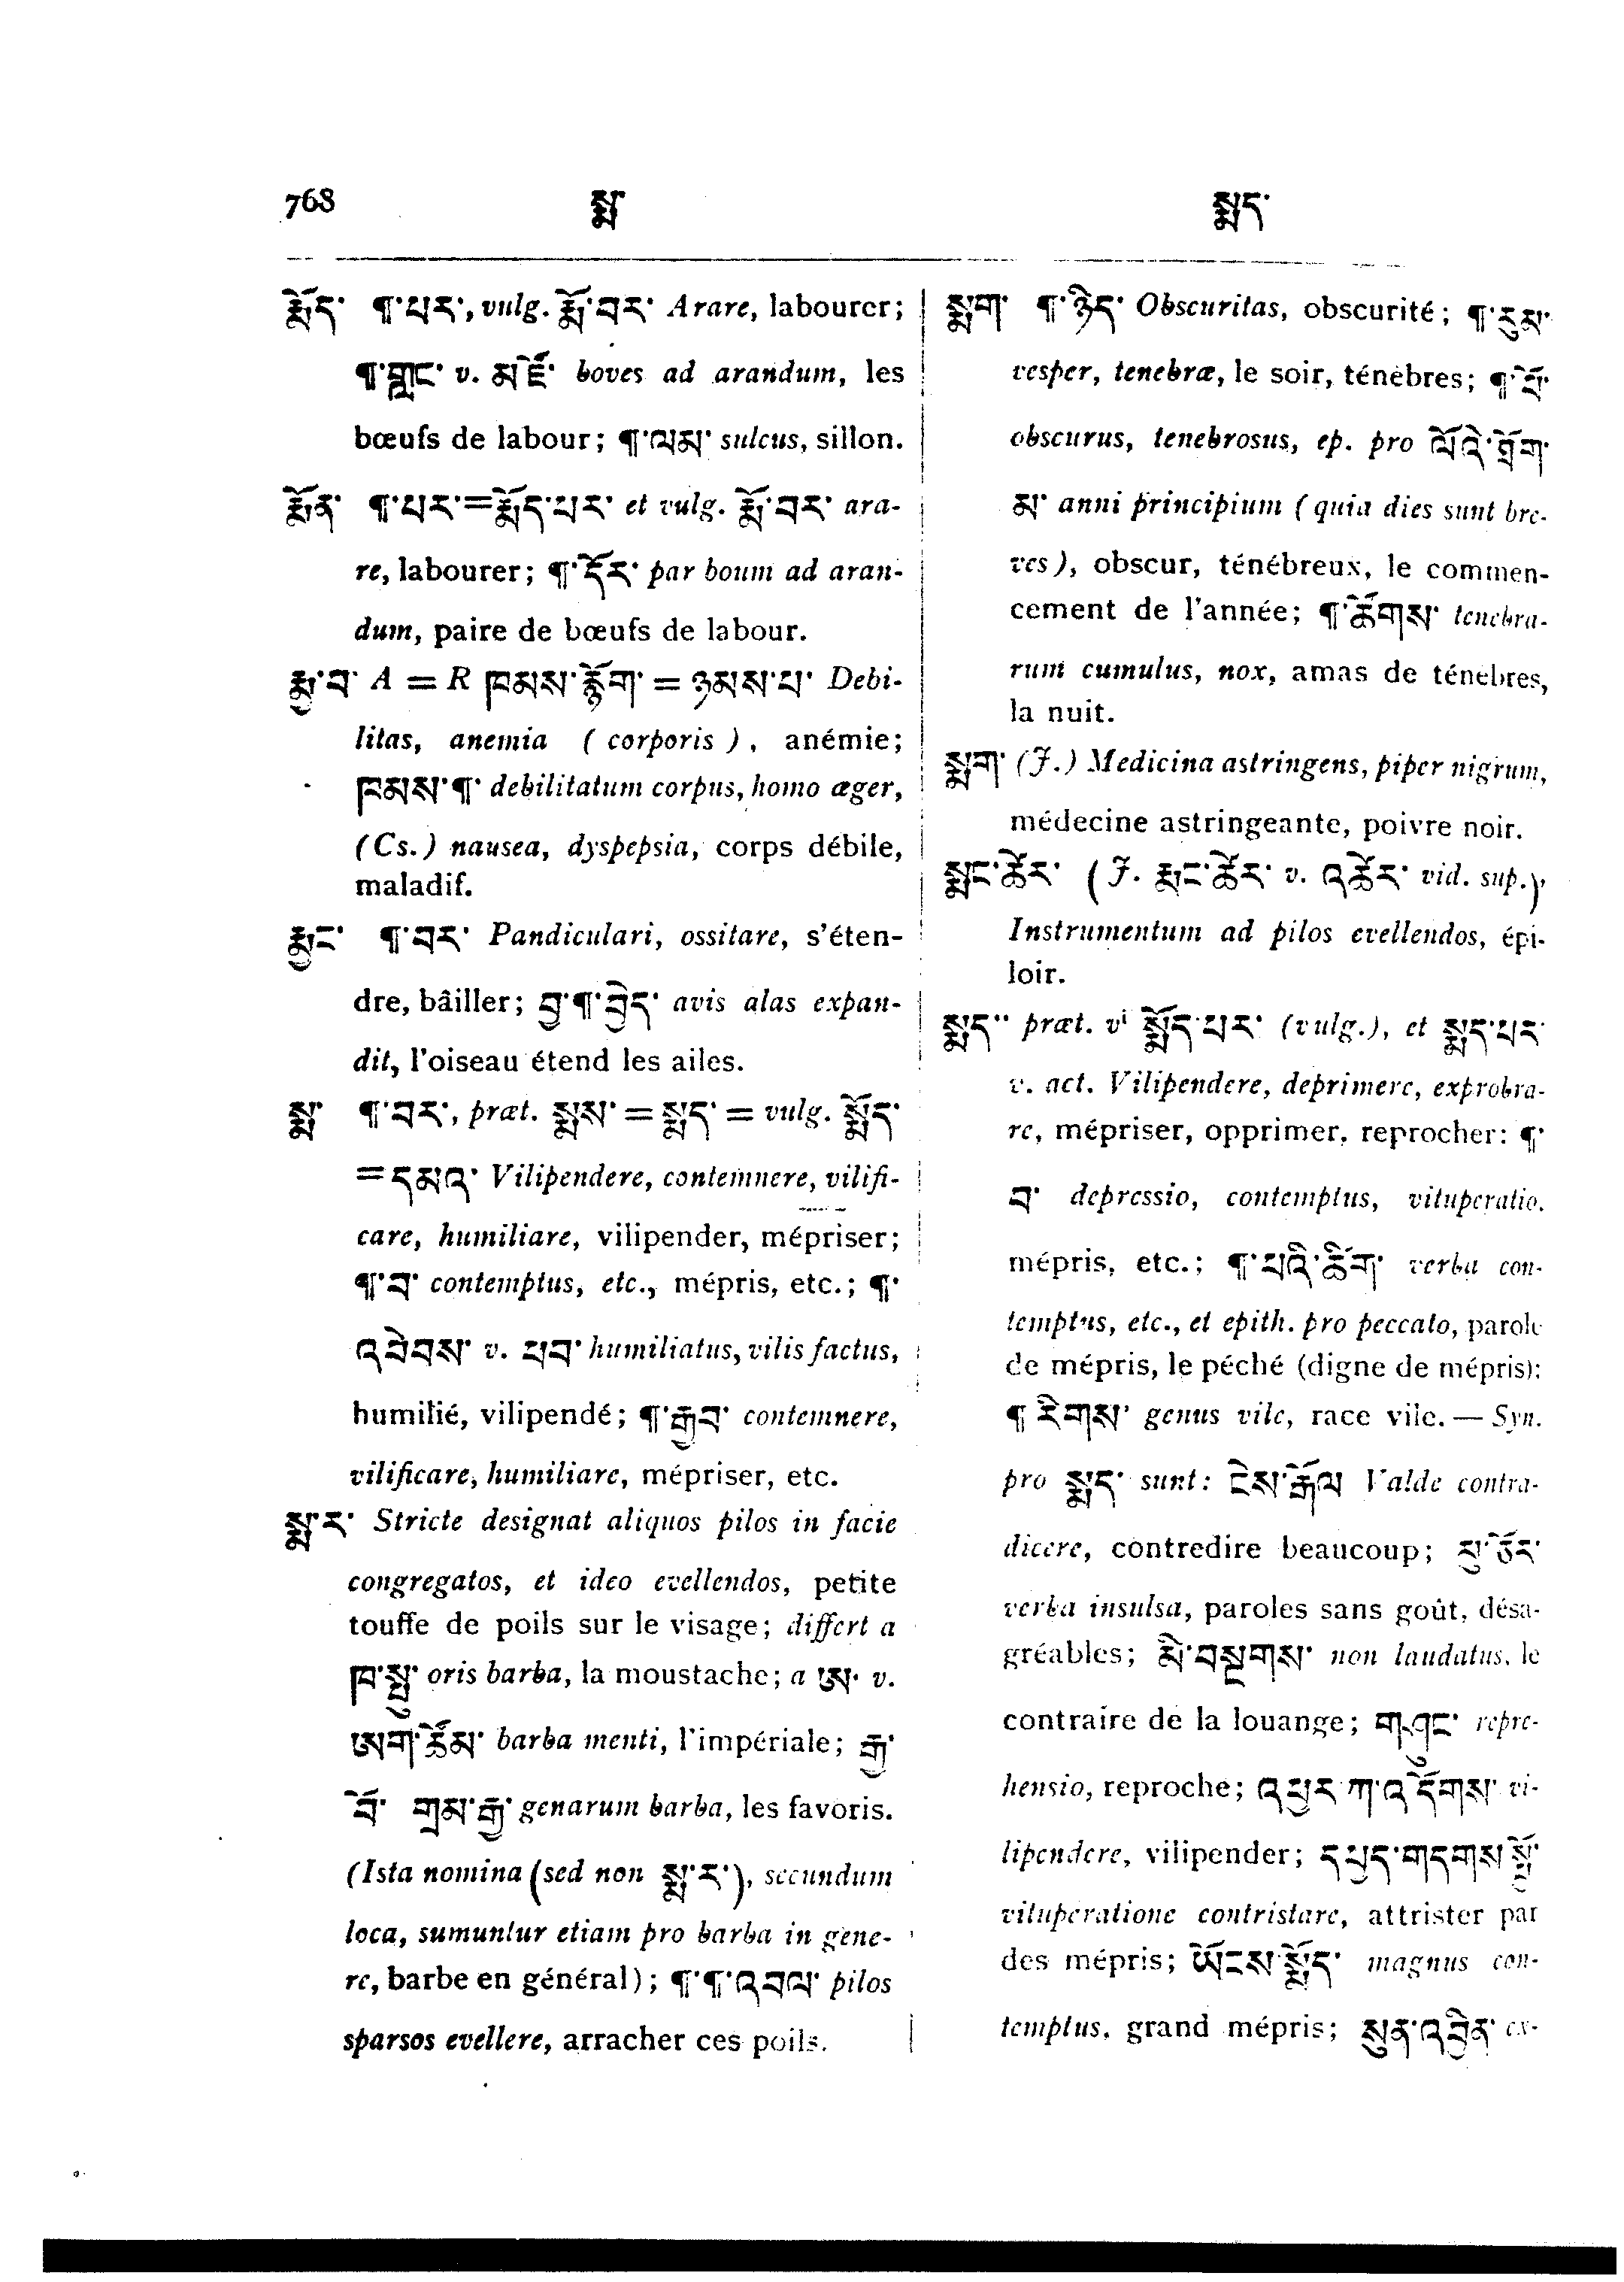 768 སྨ་ སྨད་
རྨོད་ ¶་པར་, vulg. རྨོ་བར་ Arare, labourer;
¶་གླང་ v. མཛོ་ boves ad arandum, les
bœufs de labour; ¶་ལམ་ sulcus, sillon.
རྨོན་ ¶་པར་=རྨོད་པར་ et vulg. རྨོ་བར་ ara-
re, labourer; ¶་དོར་ par boum ad aran-
dum, paire de bœufs de labour.
རྨྱ་བ་ A = R ཁམས་རྙོག་ = ཉམས་པ་ Debi-
litas, anemia (corporis), anémie;
ཁམས་¶་ debilitatum corpus, homo æger,
(Cs.) nausea, dyspepsia, corps débile,
maladif.
རྨྱང་ ¶་བར་ Pandiculari, ossitare, s'éten-
dre, bâiller; བྱ་¶་བྱེད་ avis alas expan-
dit, l'oiseau étend les ailes.
སྨ་ ¶་བར་, præt. སྨས་ = སྨད་ = vulg. སྨོད་
=དམའ་ Vilipendere, contemnere, vilifi-
care, humiliare, vilipender, mépriser;
¶་བ་ contemptus, etc., mépris, etc.; ¶་
འབེབས་ v. ཕབ་ humiliatus, vilis factus,
humilié, vilipendé; ¶་རྒྱབ་ contemnere,
vilificare, humiliare, mépriser, etc.
སྨ་ར་ Stricte designat aliquos pilos in facie
congregatos, et ideo evellendos, petite
touffe de poils sur le visage; differt a
ཁ་སྤུ་ oris barba, la moustache; a ཨ་ v.
ཨག་ཚོམ་ barba menti, l'impériale; རྒྱ་
བོ་ གྲམ་རྒྱ་ genarum barba, les favoris.
(Ista nomina (sed non སྨ་ར་), secundum
loca, sumuntur etiam pro barba in gene-
re, barbe en général); ¶་¶་འབལ་ pilos
sparsos evellere, arracher ces poils.
སྨག་ ¶་ཉིད་ Obscuritas, obscurité; ¶་རུམ་
vesper, tenebræ, le soir, ténèbres; ¶་པོ་
obscurus, tenebrosus, ep. pro ལོའི་ཐོག་
མ་ anni principium (quia dies sunt bre-
ves), obscur, ténébreux, le commen-
cement de l'année; ¶་ཚོགས་ tenebra-
rum cumulus, nox, amas de ténèbres,
la nuit.
སྨག་ (J.) Medicina astringens, piper nigrum,
médecine astringeante, poivre noir.
སྨང་ཚེར་ (J. རྨང་ཚེར་ v. འཚེར་ vid. sup.),
Instrumentum ad pilos evellendos, épi-
loir.
སྨད་ præt. vⁱ སྨོད་པར་ (vulg.), et སྨད་པར་
v. act. Vilipendere, deprimere, exprobra-
re, mépriser, opprimer, reprocher: ¶་
བ་ depressio, contemptus, vituperatio,
mépris, etc.; ¶་པའི་ཚིག་ verba con-
temptus, etc., et epith. pro peccato, parole
de mépris, le péché (digne de mépris):
¶ རིགས་ genus vile, race vile. — Syn.
pro སྨད་ sunt: ངེས་རྒོལ Valde contra-
dicere, contredire beaucoup; དྲུ་ཙོར་
verba insulsa, paroles sans goût, désa-
gréables; མི་བསྔགས་ non laudatus, le
contraire de la louange; གཤུང་ repre-
hensio, reproche; འཕྱར་ཀ་འདོགས་ vi-
lipendere, vilipender; དཔྱད་གདགས་སྨོ་
vituperatione contristare, attrister par
des mépris; ཡོངས་སྨོད་ magnus con-
temptus, grand mépris; སུན་འབྱིན་ ex-